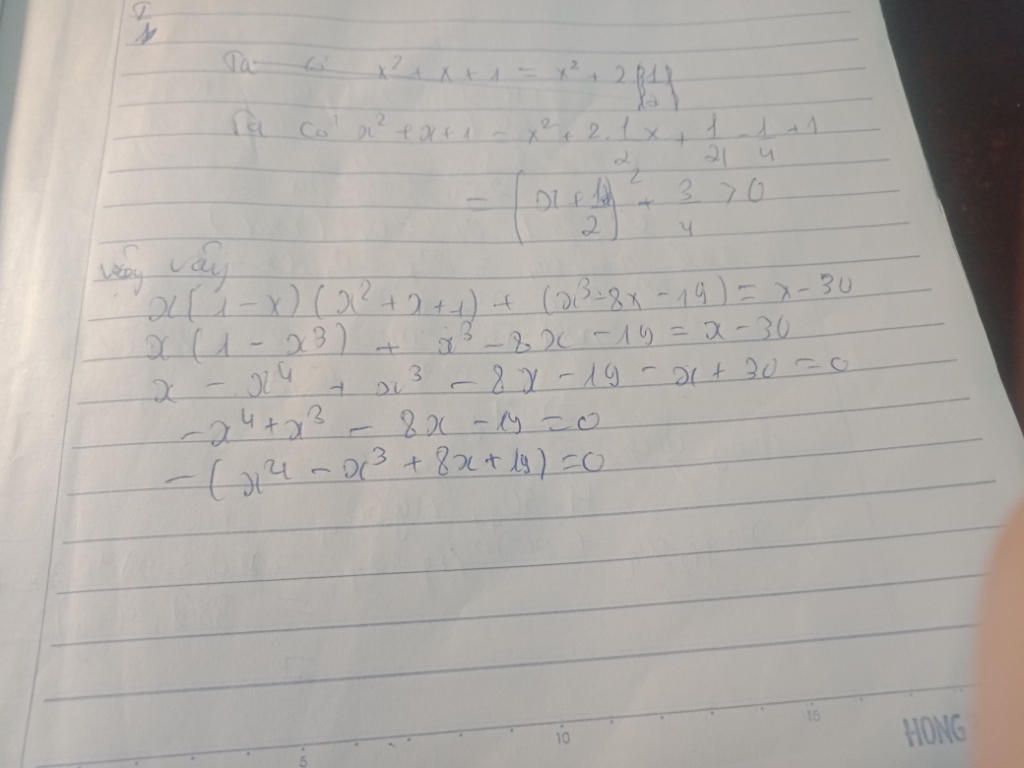 I
1
Ta có x² + x + 1 = x² + 2
Ta có x² + x + 1 = x² + 2.1/2 x + 1/4 - 1/4 + 1
= (x + 1/2)² + 3/4 > 0
vậy vậy
x(1 - x)(x² + x + 1) + (x³ - 8x - 19) = x - 30
x(1 - x³) + x³ - 8x - 19 = x - 30
x - x⁴ + x³ - 8x - 19 - x + 30 = 0
-x⁴ + x³ - 8x - 19 = 0
-(x⁴ - x³ + 8x + 19) = 0
5 10 15
HONG